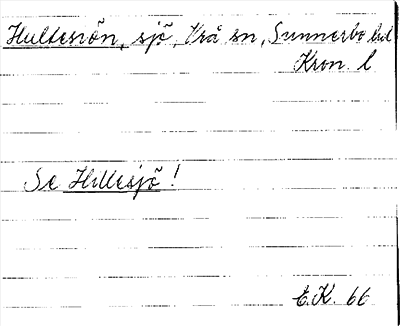 Hultesnön, sjö, Vrå sn, Sunnerbo hd
Kron. l
Se Hillesjö!
E.K. 66